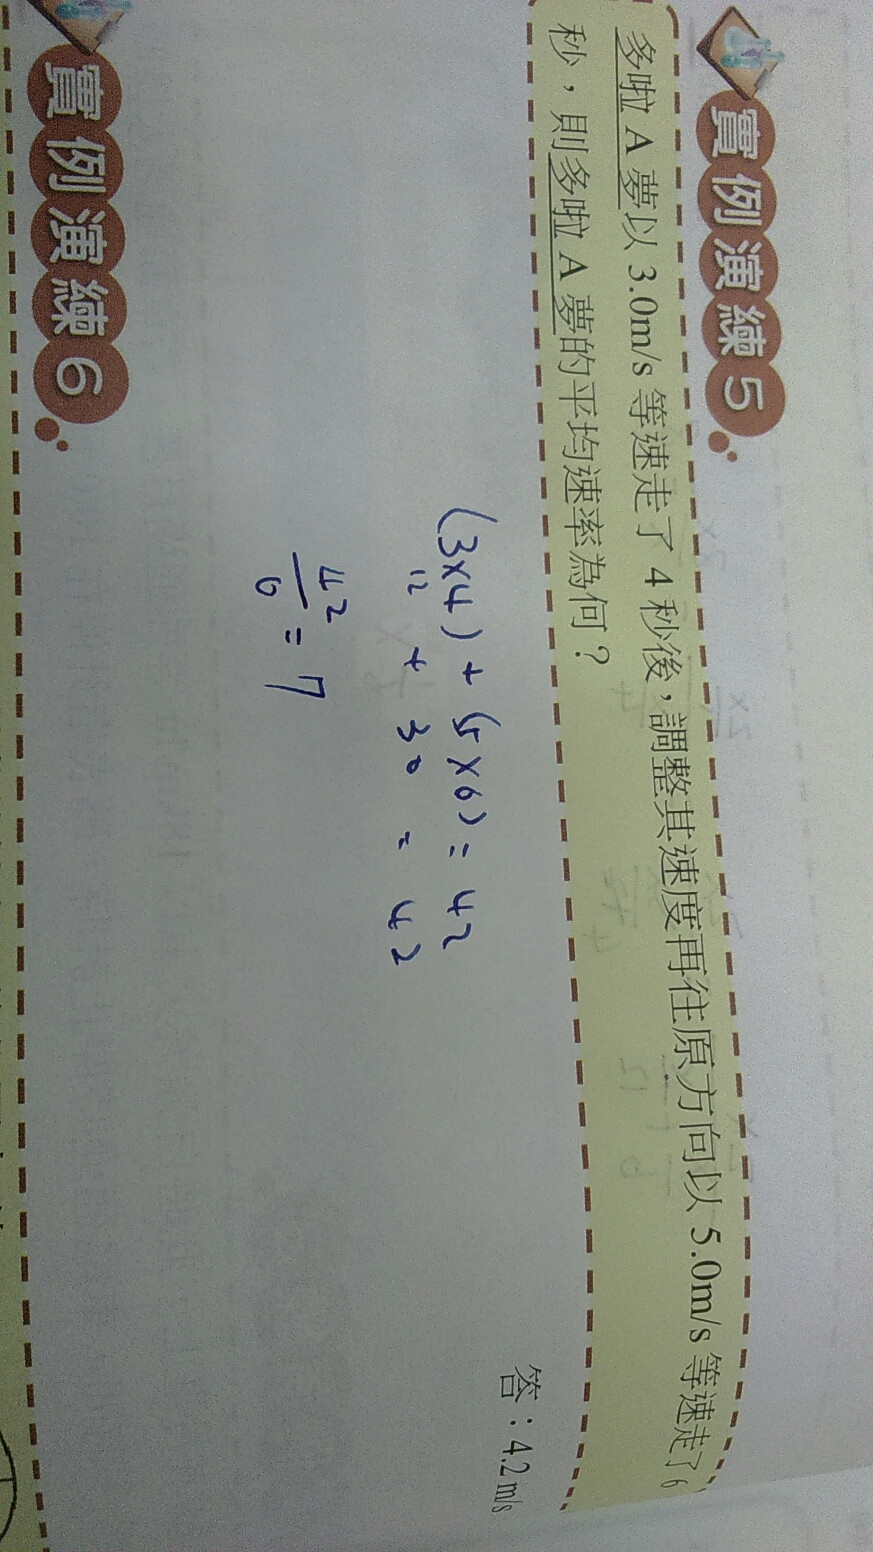 實例演練5
多啦A夢以 3.0m/s 等速走了 4 秒後，調整其速度再往原方向以 5.0m/s 等速走了 6
秒，則多啦A夢的平均速率為何？
答：4.2 m/s
(3×4) + (5×6) = 42
12 + 30 = 42
42
6
= 7
實例演練6